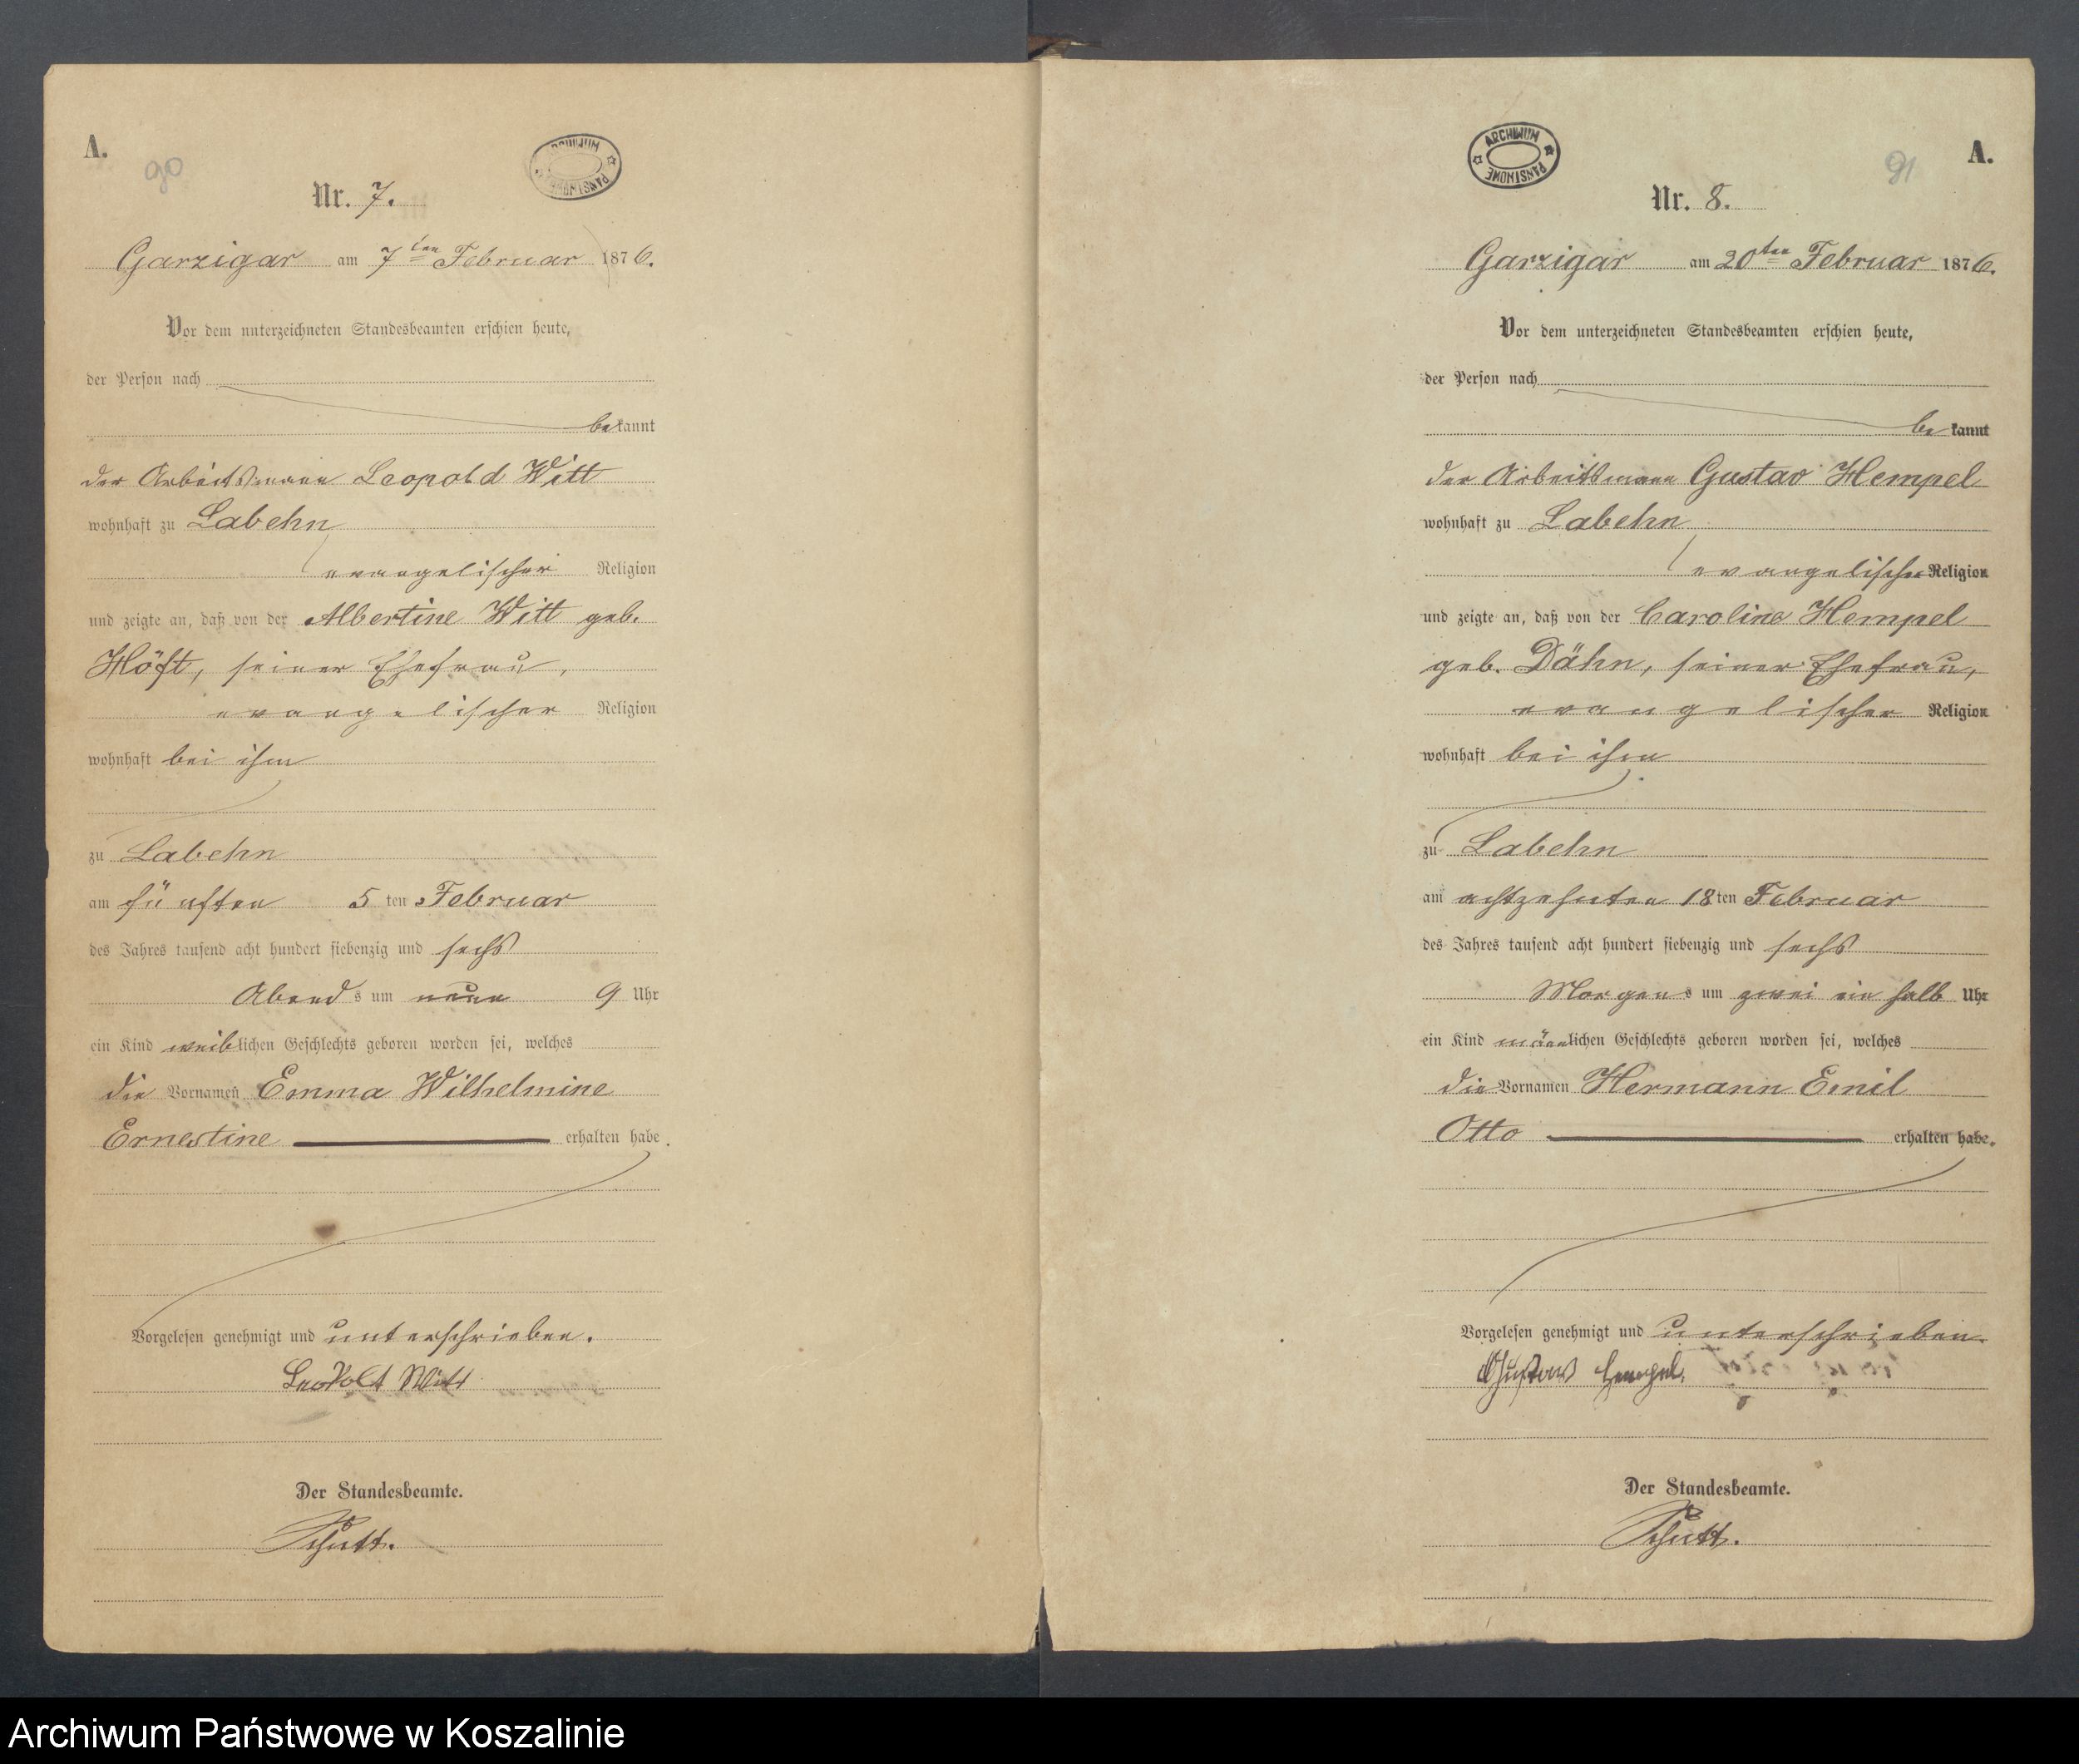 A.
90
ARCHIWUM PAŃSTWOWE
Nr. 7.
Garzigar am 7ten Februar 1876.
Vor dem unterzeichneten Standesbeamten erschien heute,
der Person nach
bekannt
der Arbeitsmann Leopold Witt
wohnhaft zu Labehn
evangelischer Religion
und zeigte an, daß von der Albertine Witt geb.
Höft, seiner Ehefrau,
evangelischer Religion
wohnhaft bei ihm
zu Labehn
am fünften 5ten Februar
des Jahres tausend acht hundert siebenzig und sechs
Abends um neun 9 Uhr
ein Kind weiblichen Geschlechts geboren worden sei, welches
die Vornamen Emma Wilhelmine
Ernestine erhalten habe.
Vorgelesen genehmigt und unterschrieben.
Leopolt Witt
Der Standesbeamte.
Schutt.
ARCHIWUM PAŃSTWOWE
91
A.
Nr. 8.
Garzigar am 20ten Februar 1876.
Vor dem unterzeichneten Standesbeamten erschien heute,
der Person nach
bekannt
der Arbeitsmann Gustav Hempel
wohnhaft zu Labehn
evangelischer Religion
und zeigte an, daß von der Caroline Hempel
geb. Dähn, seiner Ehefrau,
evangelischer Religion
wohnhaft bei ihm
zu Labehn
am achtzehnten 18ten Februar
des Jahres tausend acht hundert siebenzig und sechs
Morgens um zwei ein halb Uhr
ein Kind männlichen Geschlechts geboren worden sei, welches
die Vornamen Hermann Emil
Otto erhalten habe.
Vorgelesen genehmigt und unterschrieben.
Gustav Hempel.
Der Standesbeamte.
Schutt.
Archiwum Państwowe w Koszalinie